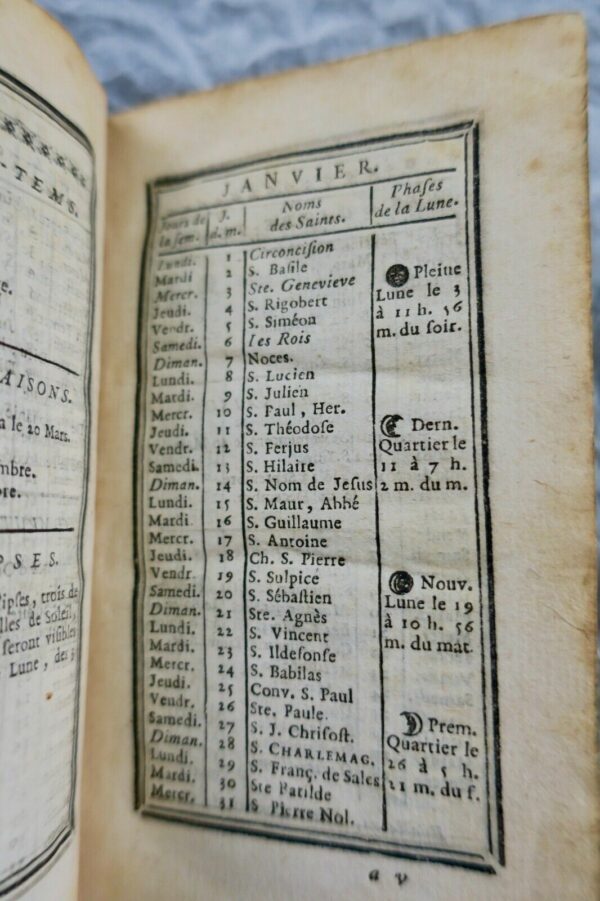 -TEMS.
e.
AISONS.
a le 20 Mars.
mbre.
bre.
PSES.
lipſes, trois de
lles de Soleil,
ſeront viſibles
Lune, des 3
JANVIER.
Jours de la ſem. J. d. m. Noms des Saints. Phaſes de la Lune.
Lundi. 1 Circonciſion
Mardi 2 S. Baſile
Mercr. 3 Ste. Genevieve
Jeudi. 4 S. Rigobert
Vendr. 5 S. Siméon
Samedi. 6 Les Rois
Diman. 7 Noces.
Lundi. 8 S. Lucien
Mardi. 9 S. Julien
Mercr. 10 S. Paul, Her.
Jeudi. 11 S. Théodoſe
Vendr. 12 S. Ferjus
Samedi. 13 S. Hilaire
Diman. 14 S. Nom de Jeſus
Lundi. 15 S. Maur, Abbé
Mardi. 16 S. Guillaume
Mercr. 17 S. Antoine
Jeudi. 18 Ch. S. Pierre
Vendr. 19 S. Sulpice
Samedi. 20 S. Sébaſtien
Diman. 21 Ste. Agnès
Lundi. 22 S. Vincent
Mardi. 23 S. Ildefonſe
Mercr. 24 S. Babilas
Jeudi. 25 Conv. S. Paul
Vendr. 26 Ste. Paule.
Samedi. 27 S. J. Chriſoſt.
Diman. 28 S. CHARLEMAG.
Lundi. 29 S. Franç. de Sales
Mardi. 30 Ste Batilde
Mercr. 31 S Pierre Nol.
Pleine
Lune le 3
à 11 h. 56
m. du ſoir.
Dern.
Quartier le
11 à 7 h.
2 m. du m.
Nouv.
Lune le 19
à 10 h. 56
m. du mat.
Prem.
Quartier le
26 à 5 h.
21 m. du ſ.
a v